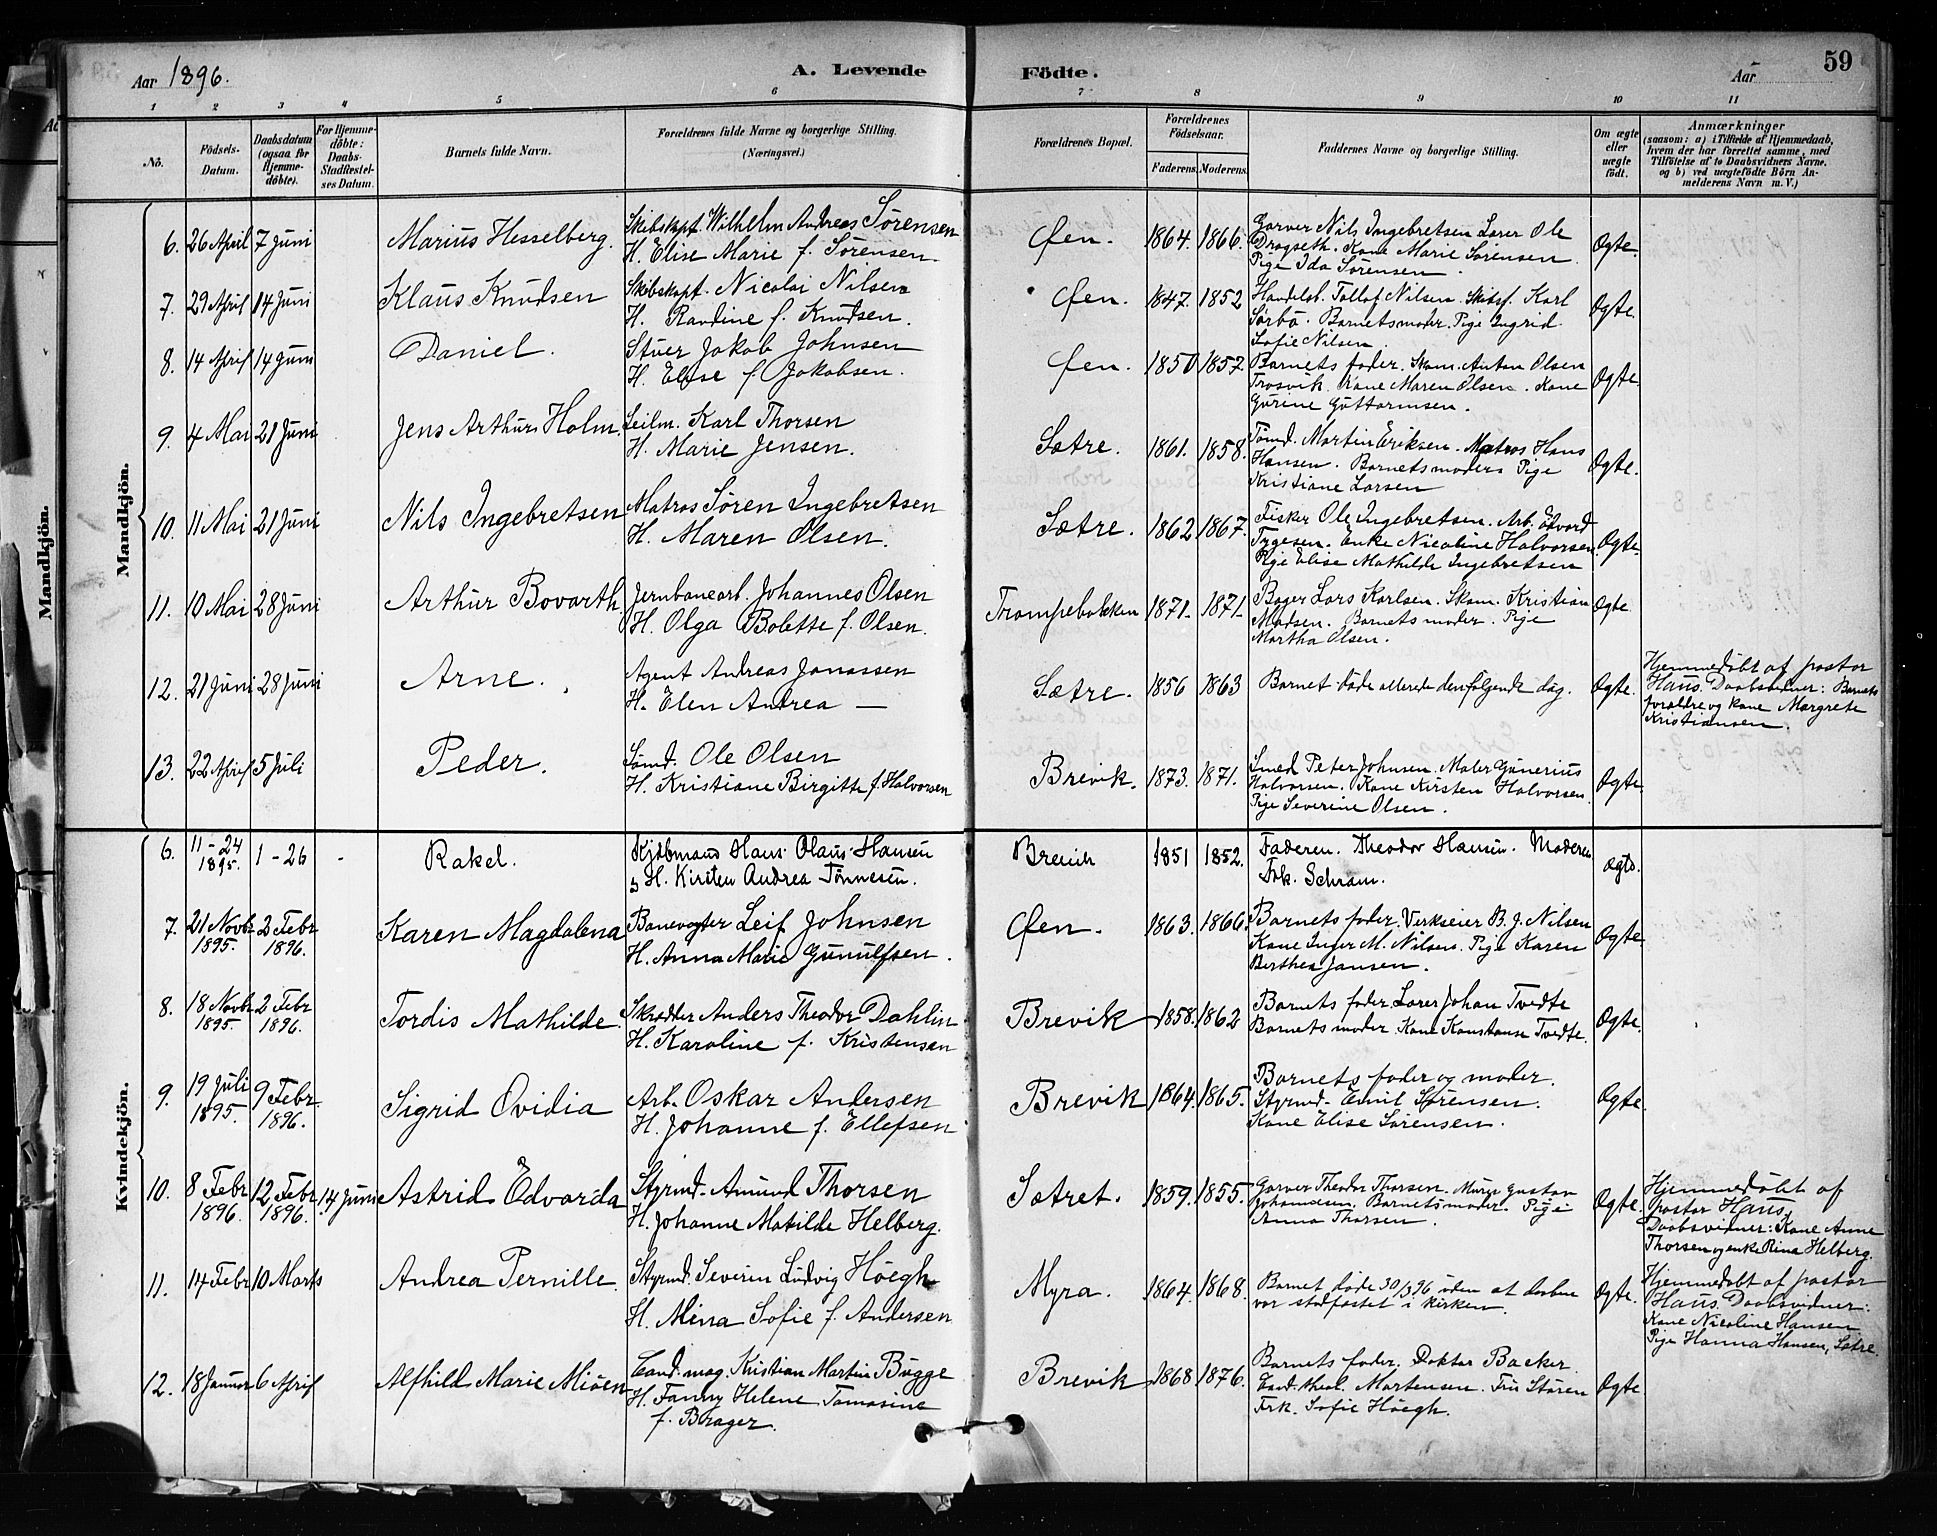 Aar 1896.
A. Levende Födte.
Aar
59
1 2 3 4 5 6 7 8 9 10 11
No.
Födsels-Datum.
Daabsdatum (ogsaa for Hjemmedöbte).
For Hjemmedöbte: Daabs-Stadfæstelses Datum.
Barnets fulde Navn.
Forældrenes fulde Navne og borgerlige Stilling. (Næringsvei.)
Forældrenes Bopæl.
Forældrenes Födselsaar.
Faderens. Moderens.
Faddernes Navne og borgerlige Stilling.
Om ægte eller uægte födt.
Anmærkninger
(saasom: a) i Tilfælde af Hjemmedaab, hvem der har forrettet samme, med Tilföielse af to Daabsvidners Navne, og b) ved uægtefödte Börn Anmelderens Navn m. V.)
Mandkjön.
Mandkjön.
6. 26 April 7 Juni Marius Hesselberg.
Skibskapt. Wilhelm Andreas Sørensen
H. Elise Marie f. Sørensen.
Øen. 1864. 1866.
Garver Nils Ingebretsen Lærer Ole
Dragseth. Kone Marie Sørensen
Pige Ida Sørensen.
Ægte.
7. 29 April 14 Juni Klaus Knudsen
Skibskapt. Nicolai Nilsen
H. Randine f. Knudsen.
Øen. 1847. 1852
Handelsb. Tollof Nilsen. Skibsf. Karl
Sørbö. Barnets moder. Pige Ingrid
Sofie Nilsen.
Ægte.
8. 14 April 14 Juni Daniel.
Stuer Jakob Johnsen
H. Elise f. Jakobsen.
Øen. 1850 1857.
Barnets fader. Skom. Anton Olsen
Trosvik. Kone Maren Olsen. Kone
Gurine Guttormsen.
Ægte.
9. 4 Mai 21 Juni Jens Arthur Holm.
Seilm. Karl Thorsen
H. Marie Jensen.
Sætre. 1861. 1858.
Tømd. Martin Eriksen. Matros Hans
Hansen. Barnets moder. Pige
Kristiane Larsen
Ægte.
10. 11 Mai 21 Juni Nils Ingebretsen
Matros Søren Ingebretsen
H. Maren Olsen.
Sætre. 1862 1867.
Fisker Ole Ingebretsen. Arb. Edvard
Tygesen. Enke Nicoline Halvorsen
Pige Elise Mathilde Ingebretsen
Ægte.
11. 10 Mai 28 Juni Arthur Bovarth.
Jernbanearb. Johannes Olsen
H. Olga Bolette f. Olsen.
Trompebakken 1871. 1871
Bager Lars Karlsen. Skom. Kristian
Madsen. Barnets moder. Pige
Martha Olsen.
Ægte
12. 21 Juni 28 Juni Arne.
Agent Andreas Jonassen
H. Elen Andrea —
Sætre. 1856 1863
Barnet døde allerede den følgende dag.
Ægte.
Hjemmedøbt af pastor
Haus. Daabsvidner: Barnets
forældre og kone Margrete
Kristiansen.
13. 22 April 5 Juli Peder.
Sømd. Ole Olsen
H. Kristiane Birgitte f. Halvorsen
Brevik. 1873. 1871.
Smed Peter Johnsen. Maler Gunerius
Halvorsen. Kone Kirsten Halvorsen.
Pige Severine Olsen.
Ægte.
Kvindekjön.
6. 11-24 1895. 1-26 - Rakel.
Kjöbmand Hans Olaus Hansen
& H. Kirsten Andrea Tönnesen.
Brevik 1851 1852.
Faderen. Theodor Hansen. Moderen
Frk. Schram.
ægte.
7. 21 Novbr 1895. 2 Febr 1896. Karen Magdalena
Banevogter Leif Johnsen
H. Anna Marie Gunulfsen.
Øen. 1863. 1866.
Barnets fader. Verkseier B. J. Nilsen
Kone Inger M. Nilsen. Pige Karen
Berthea Jansen.
Ægte.
8. 18 Novbr 1895. 2 Febr 1896. Tordis Mathilde.
Skrædder Anders Theodor Dahlin
H. Karoline f. Kristensen
Brevik 1858. 1862
Barnets fader. Lærer Johan Tvedte
Barnets moder. Kone Konstanse Tvedte.
Ægte.
9. 19 Juli 1895. 9 Febr. 1896. Sigrid Ovidia
Arb. Oskar Andersen
H. Johanne f. Ellefsen
Brevik 1864. 1865.
Barnets fader og moder.
Styrmd. Emil Sørensen.
Kone Elise Sørensen.
Ægte.
10. 8 Febr 1896. 12 Febr 1896. 14 Juni Astrid Edvarda
Styrmd. Amund Thorsen
H. Johanne Matilde Helberg.
Sætret. 1859. 1855.
Garver Theodor Thorsen. Murer Gustav
Johannesen. Barnets moder. Pige
Anna Thorsen.
Ægte.
Hjemmedøbt af
pastor Haus.
Daabsvidner: Kone Anne
Thorsen og enke Rina Helberg.
11. 14 Febr 10 Marts Andrea Pernille.
Styrmd. Severin Ludvig Höegh
H. Mina Sofie f. Andersen
Myra. 1864. 1868.
Barnet døde 30/3 96 uden at daaben
var stadfæstet i kirken.
Ægte.
Hjemmedøbt af pastor
Haus. Daabsvidner:
Kone Nicoline Hansen
Pige Hanna Hansen, Sætre.
12. 18 Januar 6 April Alfhild Marie Miöen
Cand. mag. Kristian Martin Bugge
H. Fanny Helene Tomasine
f. Brager.
Brevik 1868 1876.
Barnets fader. Doktor Backer
Cand. theol. Mortensen. Fru Stören
Frk. Sofie Höegh.
Ægte.